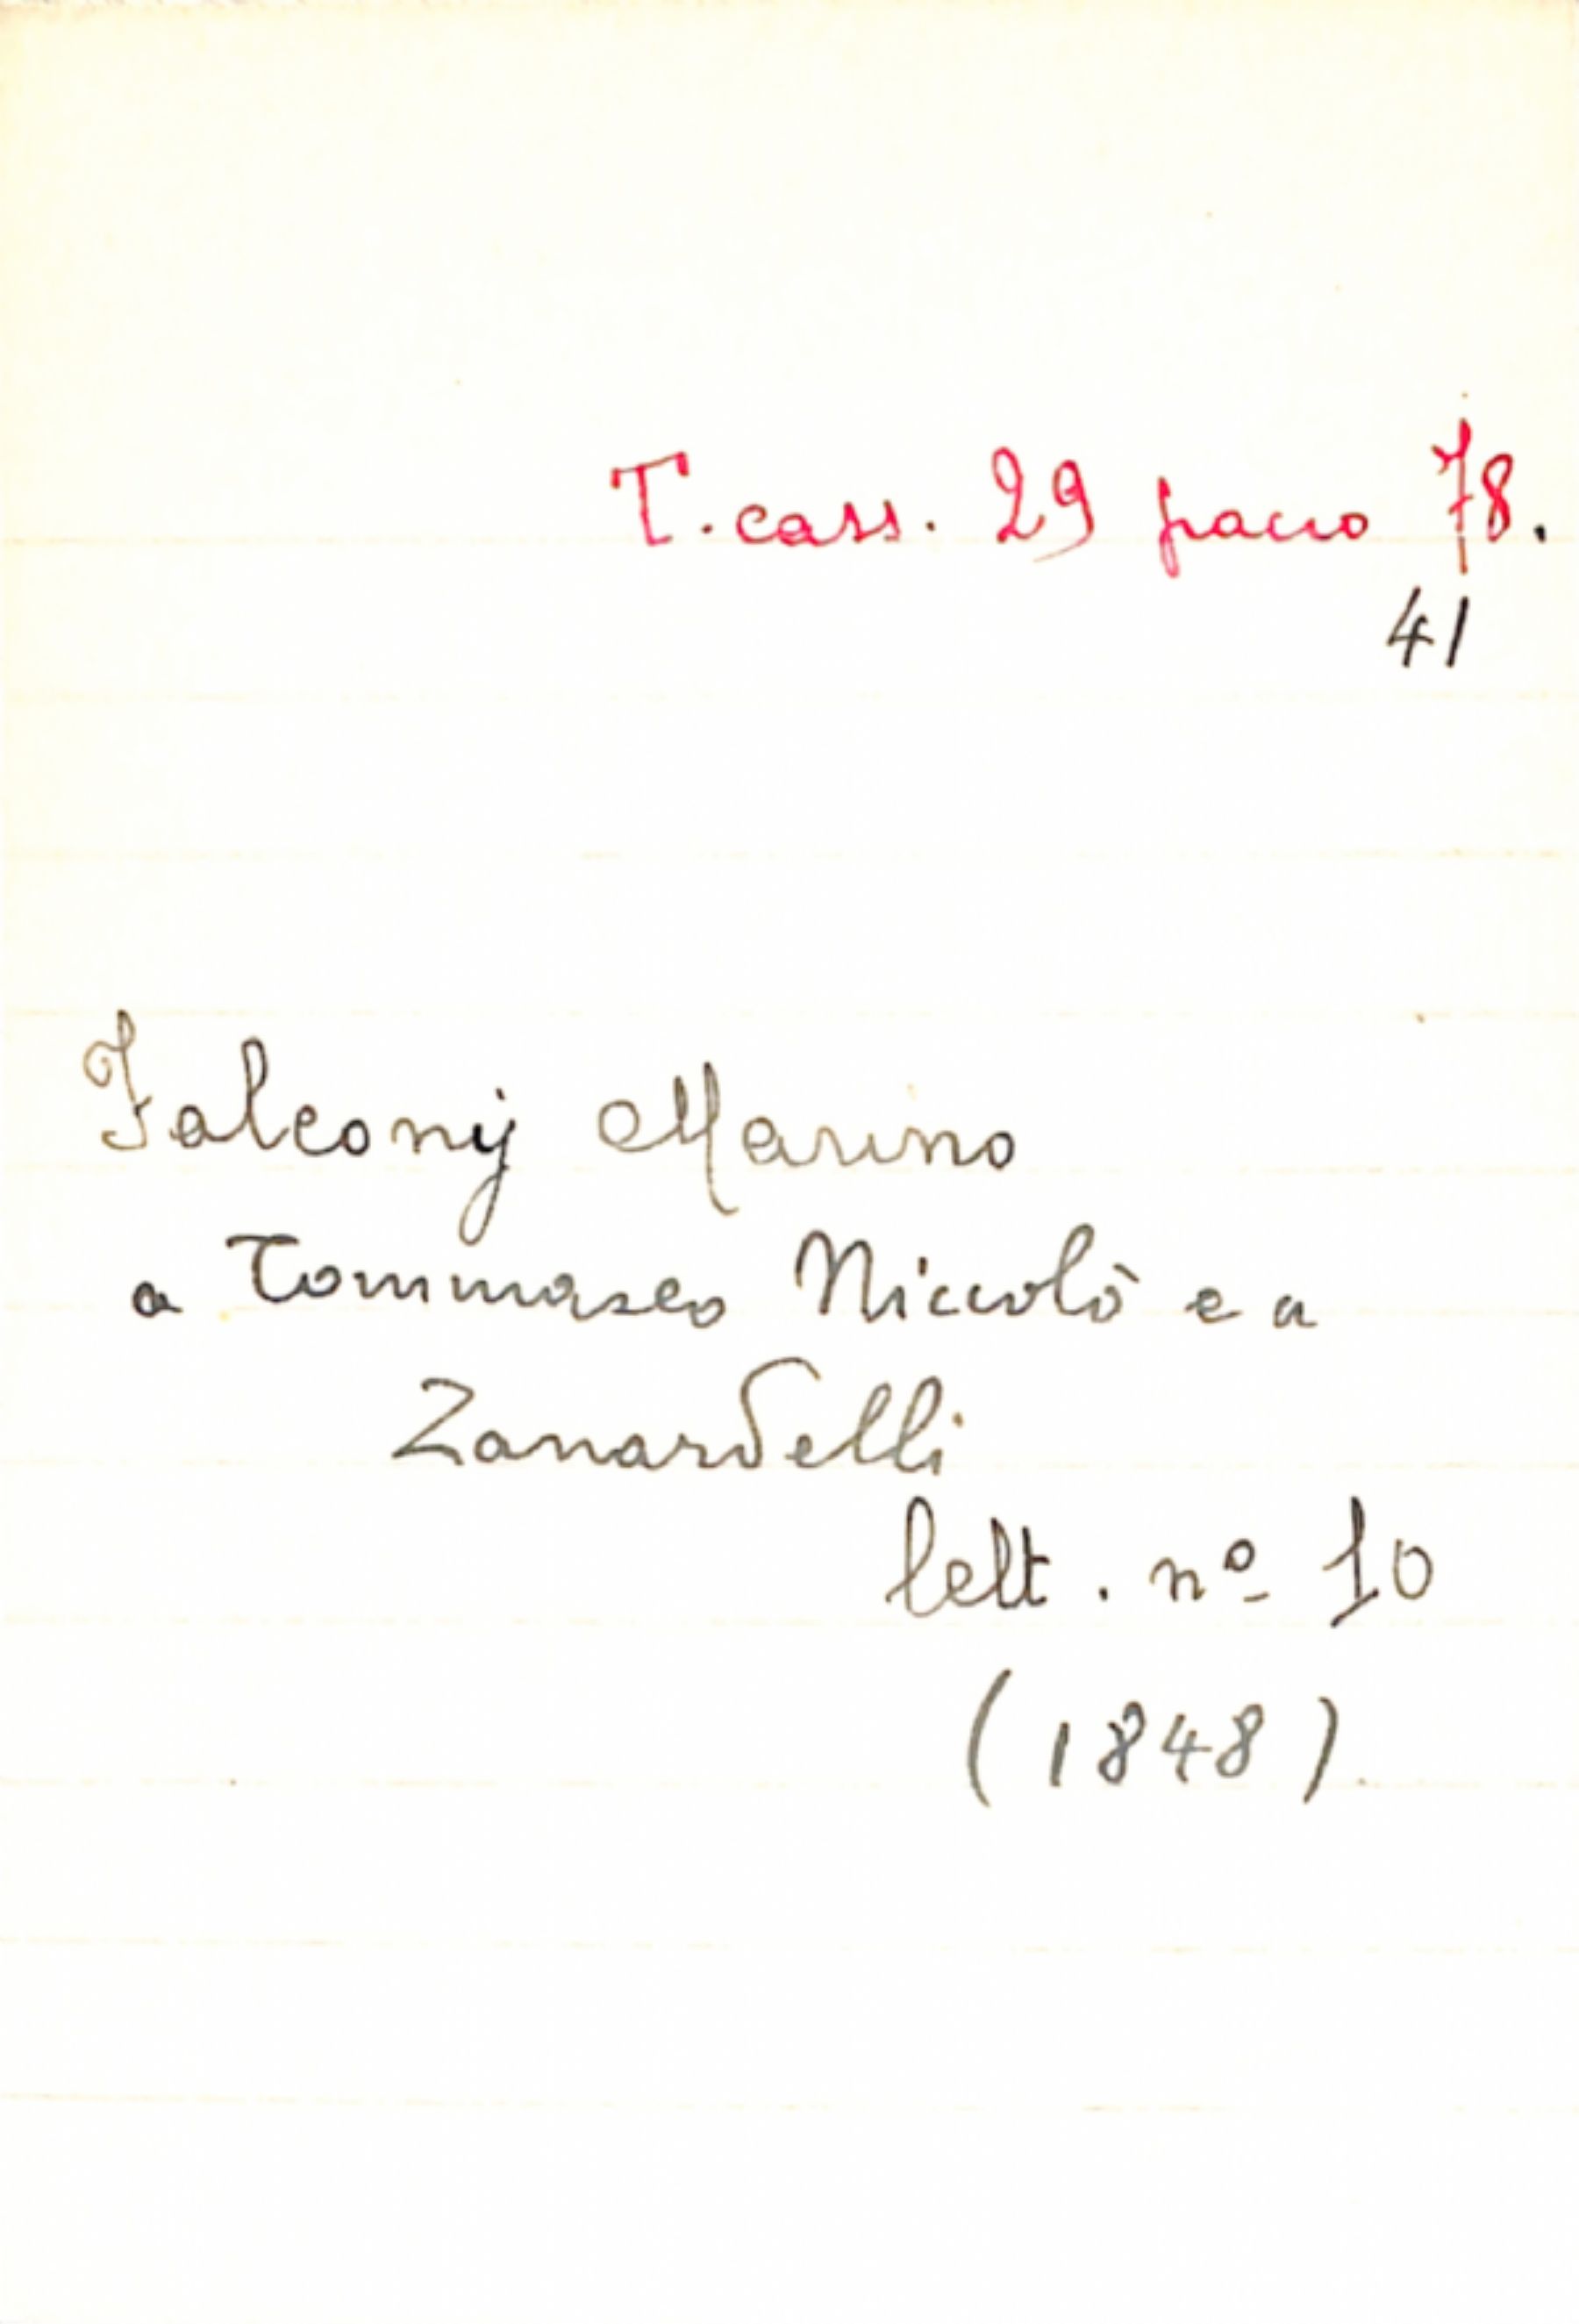 T. cass. 29 pacco 78.
41
Falconij Marino
a Tommaseo Niccolò e a
Zanardelli
lett. nº 10
(1848)